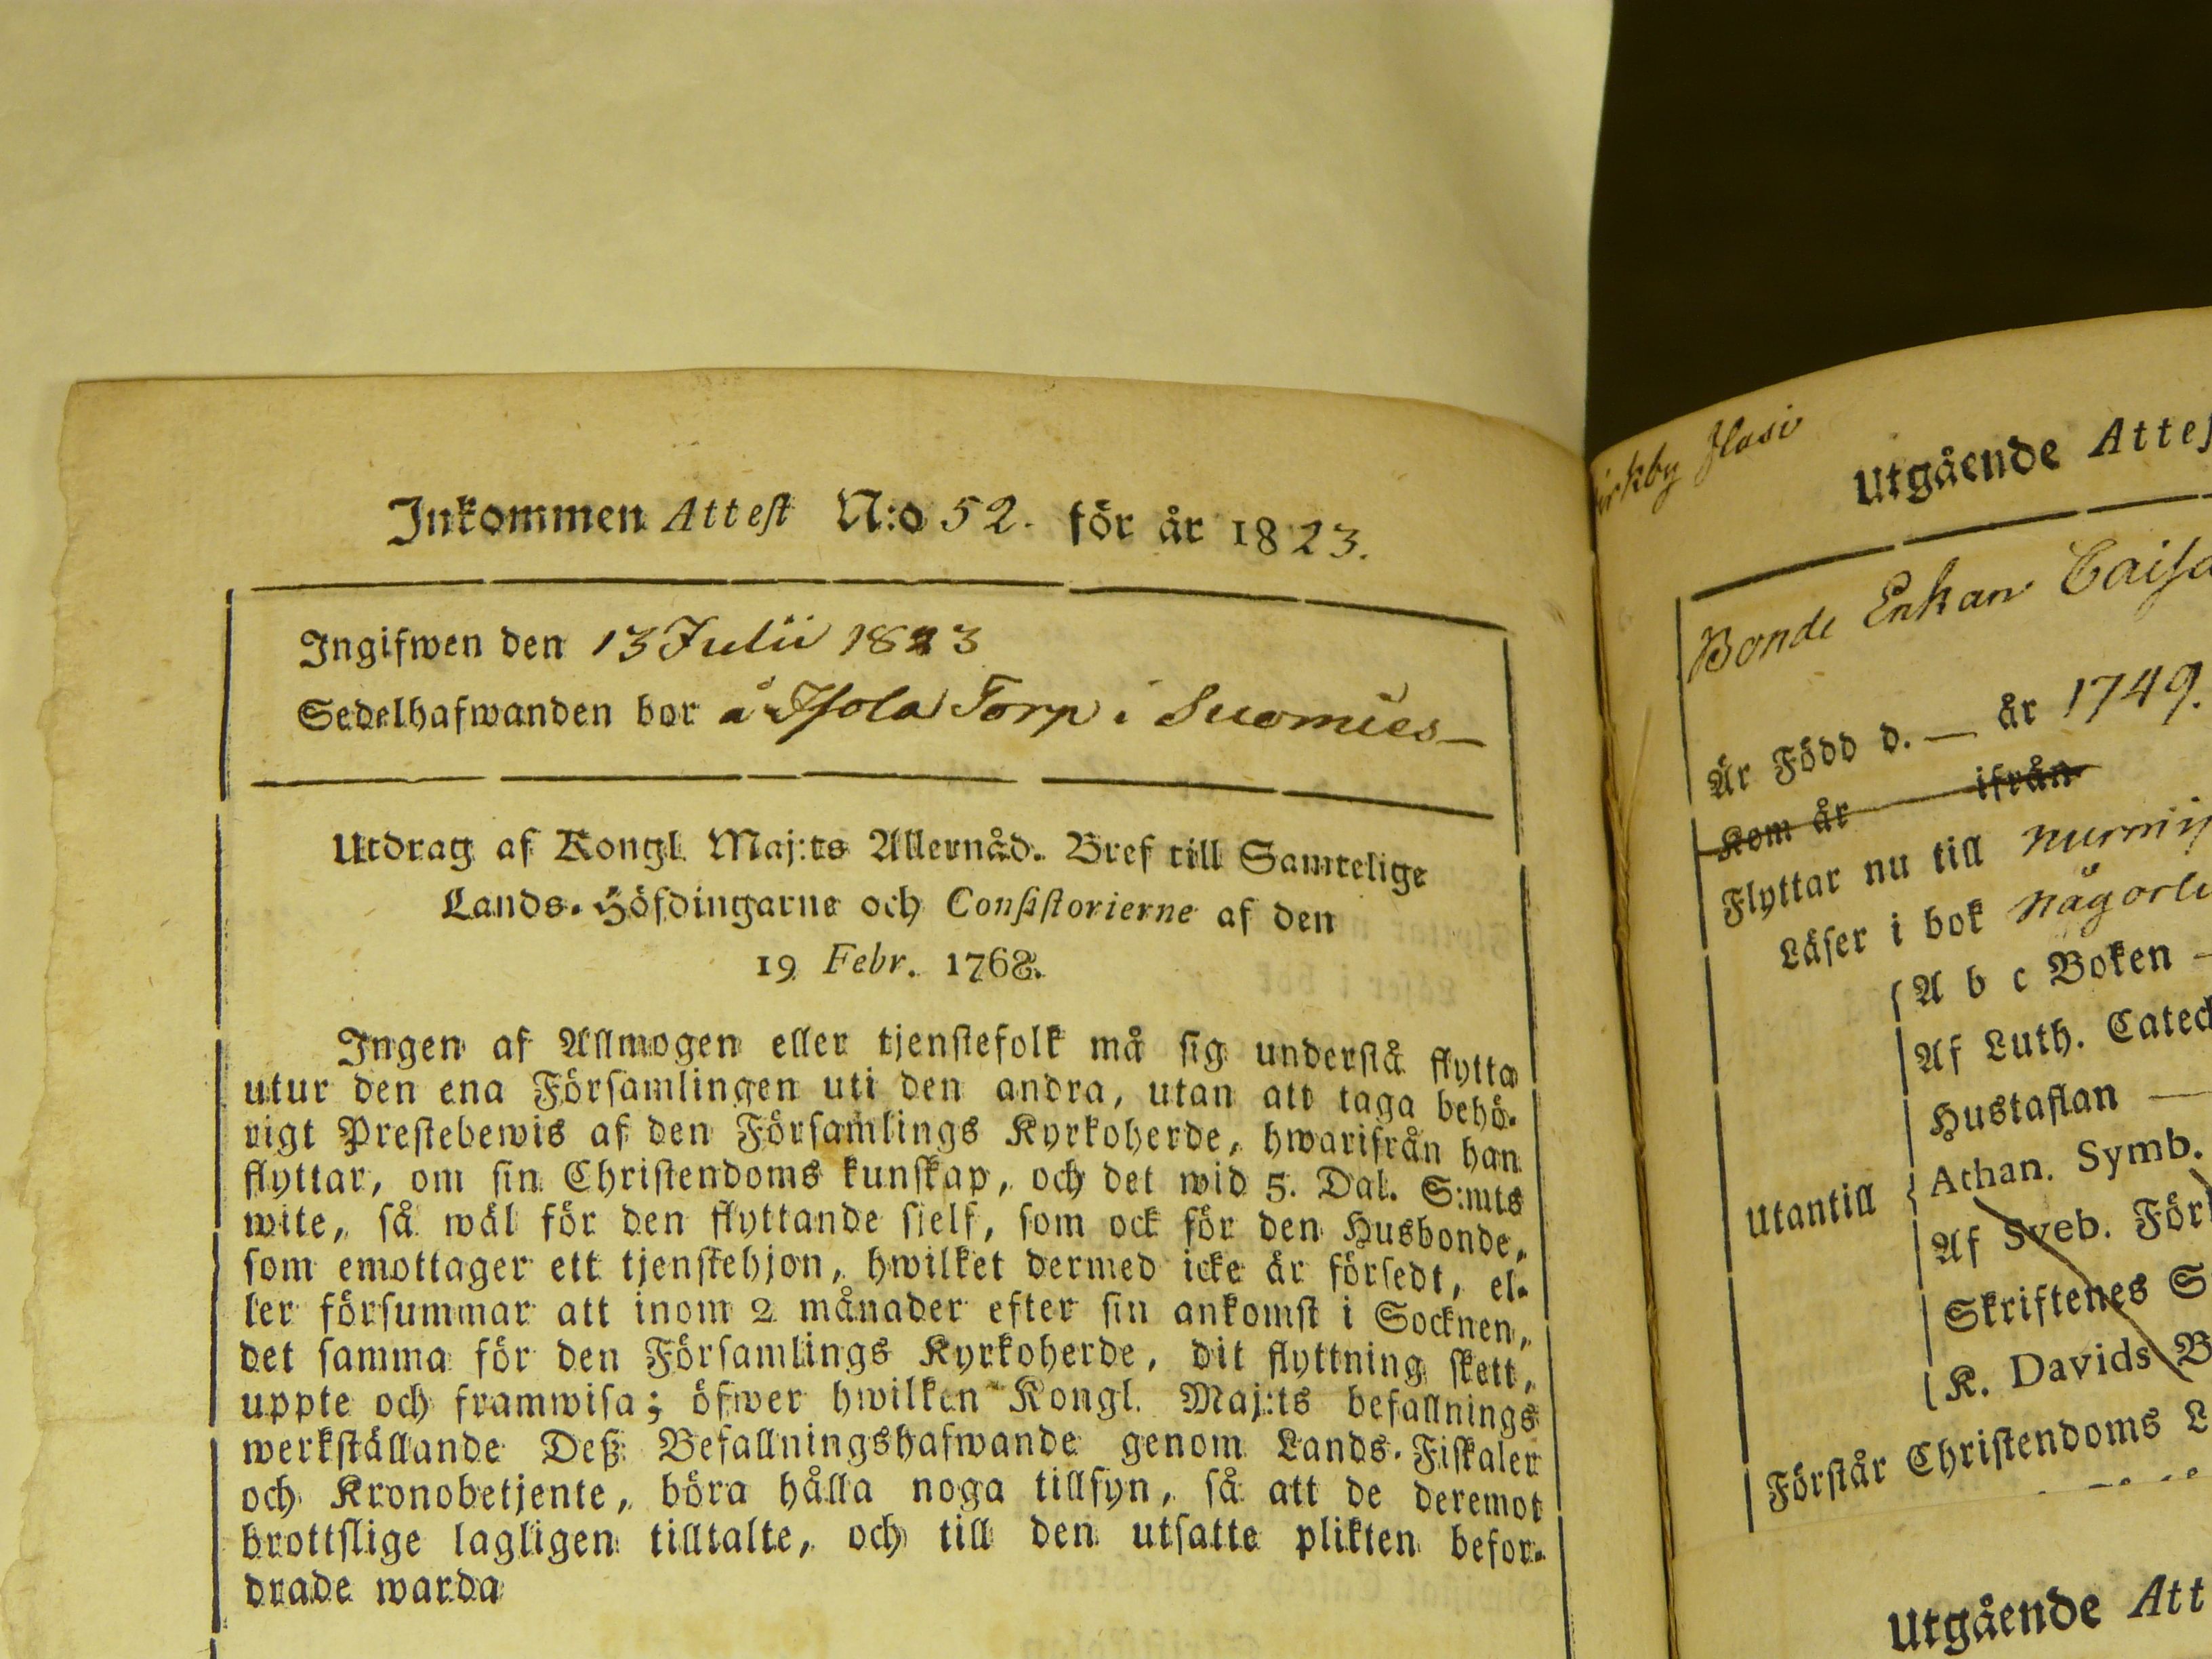 Inkommen Attest N:o 52. för år 1823.
Ingifwen den 13 Julii 1823
Sedelhafwanden bor å Isola Torp i Suomies
Utdrag af Kongl. Maj:ts Allernåd. Bref till Samtelige
Lands-Höfdingarne och Consistorierne af den
19 Febr. 1768.
Ingen af Allmogen eller tjenstefolk må sig understå flytta
utur den ena Församlingen uti den andra, utan att taga behö-
rigt Prestebewis af den Församlings Kyrkoherde, hwarifrån han
flyttar, om sin Christendoms kunskap, och det wid 5. Dal. S:mts
wite, så wäl för den flyttande sjelf, som ock för den Husbonde,
som emottager ett tjenstehjon, hwilket dermed icke är försedt, el-
ler försummar att inom 2 månader efter sin ankomst i Socknen,
det samma för den Församlings Kyrkoherde, dit flyttning skett,
uppte och framwisa; öfwer hwilken Kongl. Maj:ts befallnings
werkställande Deß Befallningshafwande genom Lands-Fiskaler
och Kronobetjente, böra hålla noga tillsyn, så att de deremot
brottslige lagligen tilltalte, och till den utsatte plikten befor-
drade warda
Utgående Attes
Bonde Enkan Caisa
Är Född d. — år 1749.
Kom år ifrån
Flyttar nu till
Läser i bok någorl
A b c Boken —
Af Luth. Catec
Hustaflan —
Athan. Symb.
Utantill
Af Sveb. För
Skriftenes S
K. Davids B
Förstår Christendoms L
Utgående Att